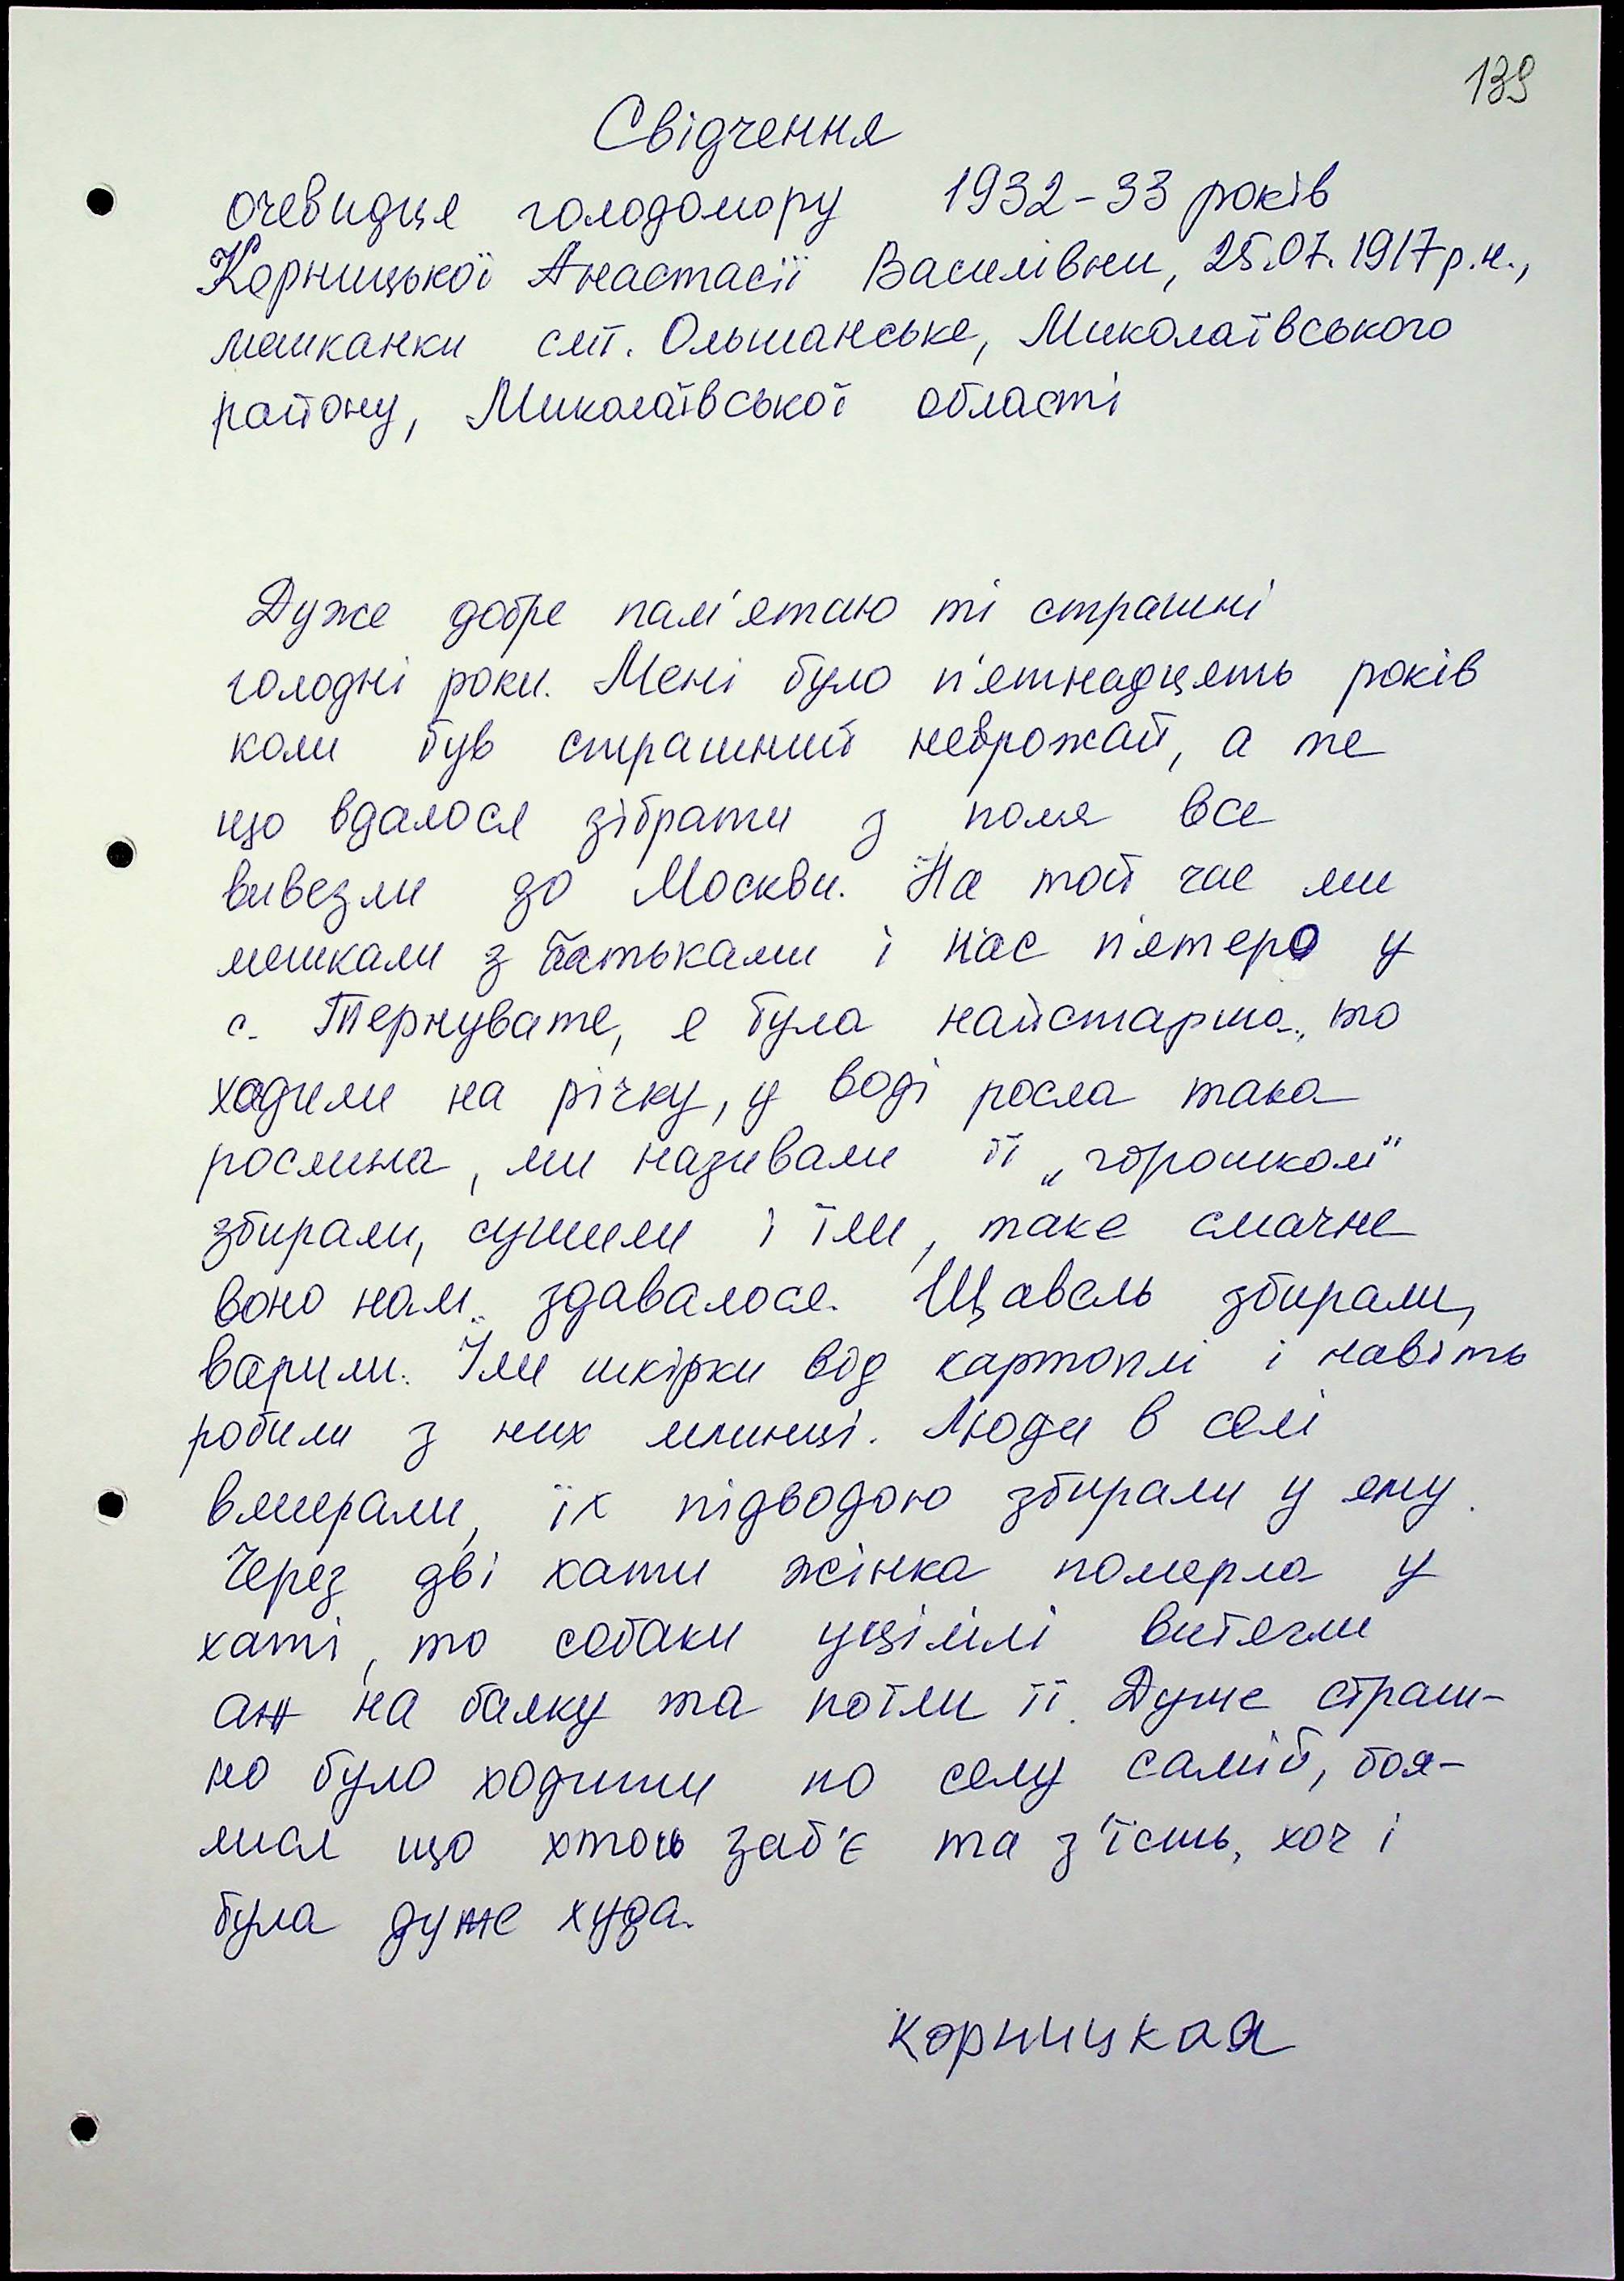 139
Свідчення
очевидця голодомору 1932-33 років
Корницької Анастасії Василівни, 25.07.1917р.н.,
мешканки смт. Ольшанське, Миколаївського
району, Миколаївської області
Дуже добре пам'ятаю ті страшні
голодні роки. Мені було п'ятнадцять років
коли був страшний неврожай, а те
що вдалося зібрати з поля все
вивезли до Москви. На той час ми
мешкали з батьками і нас п'ятеро у
с. Тернувате, я була найстарша, то
ходили на річку, у воді росла така
рослина, ми називали її „горошком"
збирали, сушили і їли, таке смачне
воно нам здавалося. Щавель збирали,
варили. Їли шкірки від картоплі і навіть
робили з них млинці. Люди в селі
вмирали, їх підводою збирали у яму.
Через дві хати жінка померла у
хаті, то собаки уцілілі витягли
аж на балку та поїли її. Дуже страш-
но було ходити по селу самій, боя-
лися що хтось заб'є та з'їсть, хоч і
була дуже худа.
Корницкая